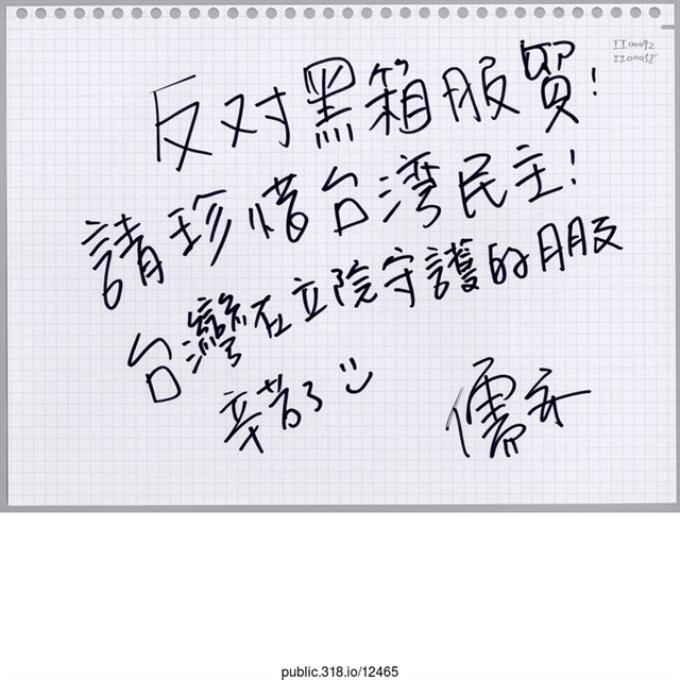 II00092
II00058
反对黑箱服貿!
請珍惜台湾民主!
台灣在立院守護的朋友
辛苦了
儒
public.318.io/12465